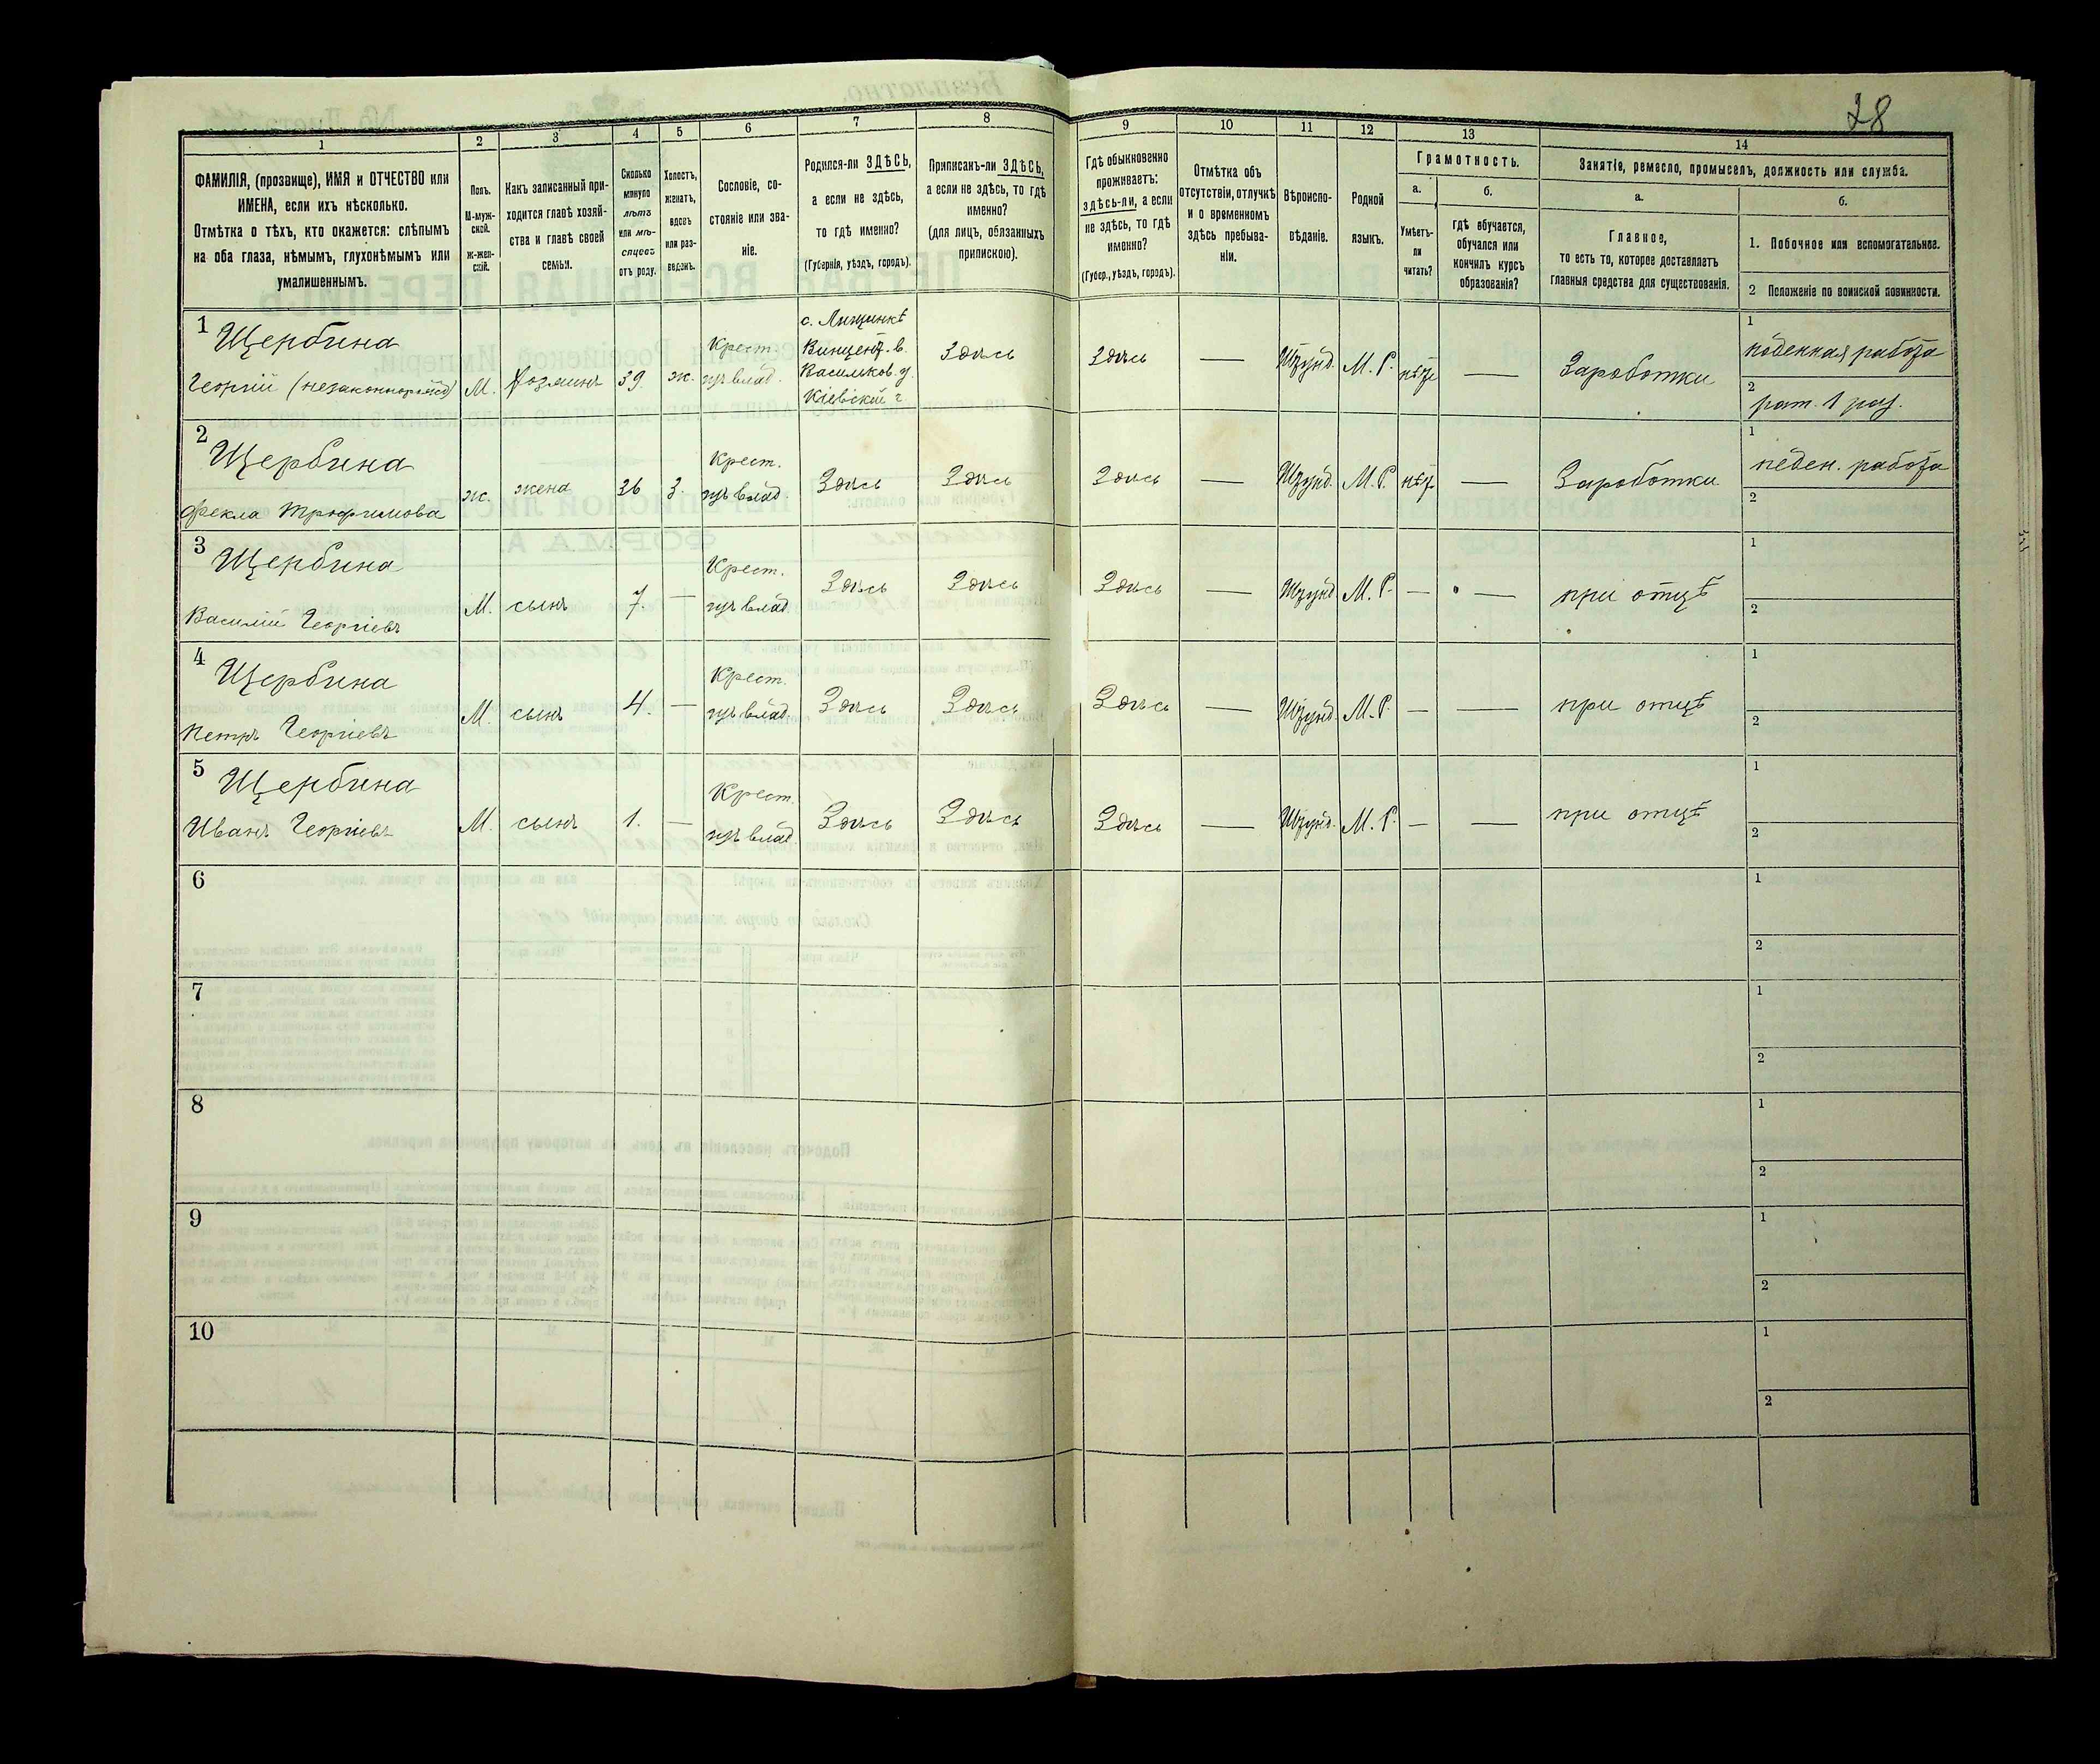 28
1
2
3
4
5
6
7
8
9
10
11
12
13
14
ФАМИЛІЯ, (прозвище), ИМЯ и ОТЧЕСТВО или
ИМЕНА, если ихъ нѣсколько.
Отмѣтка о тѣхъ, кто окажется: слѣпымъ
на оба глаза, нѣмымъ, глухонѣмымъ или
умалишеннымъ.
Полъ.
М-муж-
ской.
Ж-жен-
скій.
Какъ записанный при-
ходится главѣ хозяй-
ства и главѣ своей
семьи.
Сколько
минуло
лѣтъ
или мѣ-
сяцевъ
отъ роду.
Холостъ,
женатъ,
вдовъ
или раз-
веденъ.
Сословіе, со-
стояніе или зва-
ніе.
Родился-ли ЗДѢСЬ,
а если не здѣсь,
то гдѣ именно?
(Губернія, уѣздъ, городъ).
Приписанъ-ли ЗДѢСЬ,
а если не здѣсь, то гдѣ
именно?
(для лицъ, обязанныхъ
припискою).
Гдѣ обыкновенно
проживаетъ:
здѣсь-ли, а если
не здѣсь, то гдѣ
именно?
(Губер., уѣздъ, городъ).
Отмѣтка объ
отсутствіи, отлучкѣ
и о временномъ
здѣсь пребыва-
ніи.
Вѣроиспо-
вѣданіе.
Родной
языкъ.
Грамотность.
а.
б.
Умѣетъ-
ли
читать?
гдѣ обучается,
обучался или
кончилъ курсъ
образованія?
Занятіе, ремесло, промыселъ, должность или служба.
а.
б.
Главное,
то есть то, которое доставляетъ
главныя средства для существованія.
1. Побочное или вспомогательное.
2 Положеніе по воинской повинности.
1 Щербина
Георгій (незаконнорожд)
М.
хозяинъ
39.
ж.
Крест.
с. Лищинкѣ
Винцент. в.
Васильков. у.
Кіевской г
Здѣсь
Здѣсь
—
Штунд.
М. Р.
—
Заработки
1
поденная работа
2
рат. 1 раз.
2 Щербина
Фекла Трофимова
ж.
жена
36
З.
Крест.
Здѣсь
Здѣсь
Здѣсь
—
Штунд.
М. Р.
—
Заработки
1
поден. работа
2
3 Щербина
Василій Георгіевъ
М.
сынъ
7.
—
Крест.
Здѣсь
Здѣсь
Здѣсь
—
Штунд
М. Р.
—
—
при отцѣ
1
2
4 Щербина
Петръ Георгіевъ
М.
сынъ
4.
—
Крест.
Здѣсь
Здѣсь
Здѣсь
—
Штунд.
М. Р.
—
—
при отцѣ
1
2
5 Щербина
Иванъ Георгіевъ
М.
сынъ
1.
—
Крест.
Здѣсь
Здѣсь
Здѣсь
—
Штунд.
М. Р.
—
—
при отцѣ
1
2
6
1
2
7
1
2
8
1
2
9
1
2
10
1
2